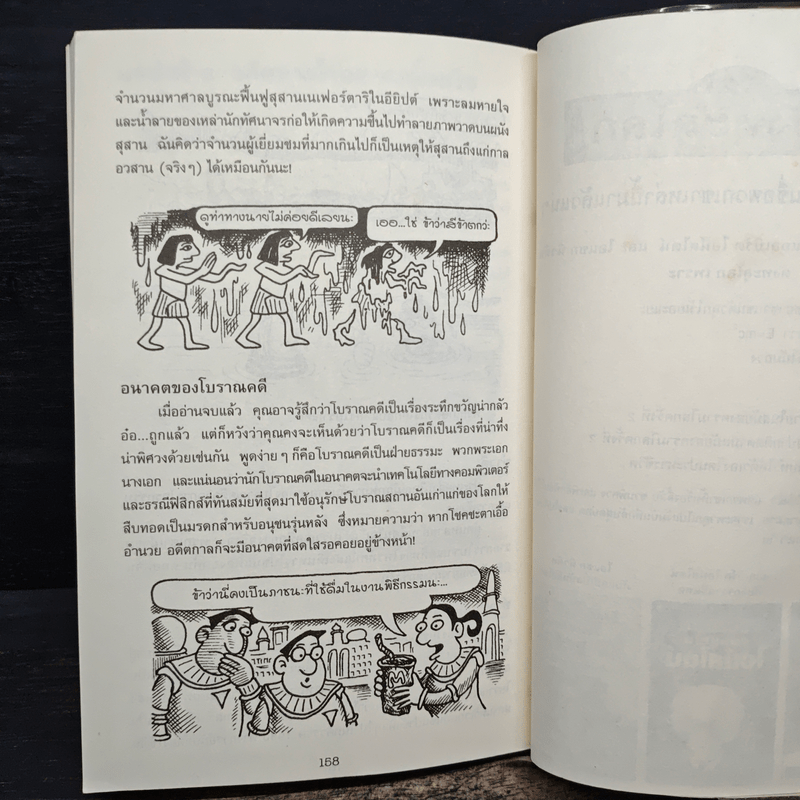 จำนวนมหาศาลบูรณะฟื้นฟูสุสานเนเฟอร์ตาริในอียิปต์ เพราะลมหายใจ
และน้ำลายของเหล่านักทัศนาจรก่อให้เกิดความชื้นไปทำลายภาพวาดบนผนัง
สุสาน ฉันคิดว่าจำนวนผู้เยี่ยมชมที่มากเกินไปก็เป็นเหตุให้สุสานถึงแก่กาล
อวสาน (จริงๆ) ได้เหมือนกันนะ!
ดูท่าทางนายไม่ค่อยดีเลยนะ
เออ...ใช่ ข้าว่าสีข้าตกว่ะ
อนาคตของโบราณคดี
เมื่ออ่านจบแล้ว คุณอาจรู้สึกว่าโบราณคดีเป็นเรื่องระทึกขวัญน่ากลัว
อ๋อ...ถูกแล้ว แต่ก็หวังว่าคุณคงจะเห็นด้วยว่าโบราณคดีก็เป็นเรื่องที่น่าทึ่ง
น่าพิศวงด้วยเช่นกัน พูดง่ายๆ ก็คือโบราณคดีเป็นฝ่ายธรรมะ พวกพระเอก
นางเอก และแน่นอนว่านักโบราณคดีในอนาคตจะนำเทคโนโลยีทางคอมพิวเตอร์
และธรณีฟิสิกส์ที่ทันสมัยที่สุดมาใช้อนุรักษ์โบราณสถานอันเก่าแก่ของโลกให้
สืบทอดเป็นมรดกสำหรับอนุชนรุ่นหลัง ซึ่งหมายความว่า หากโชคชะตาเอื้อ
อำนวย อดีตกาลก็จะมีอนาคตที่สดใสรอคอยอยู่ข้างหน้า!
ข้าว่านี่คงเป็นภาชนะที่ใช้ดื่มในงานพิธีกรรมนะ...
M
158